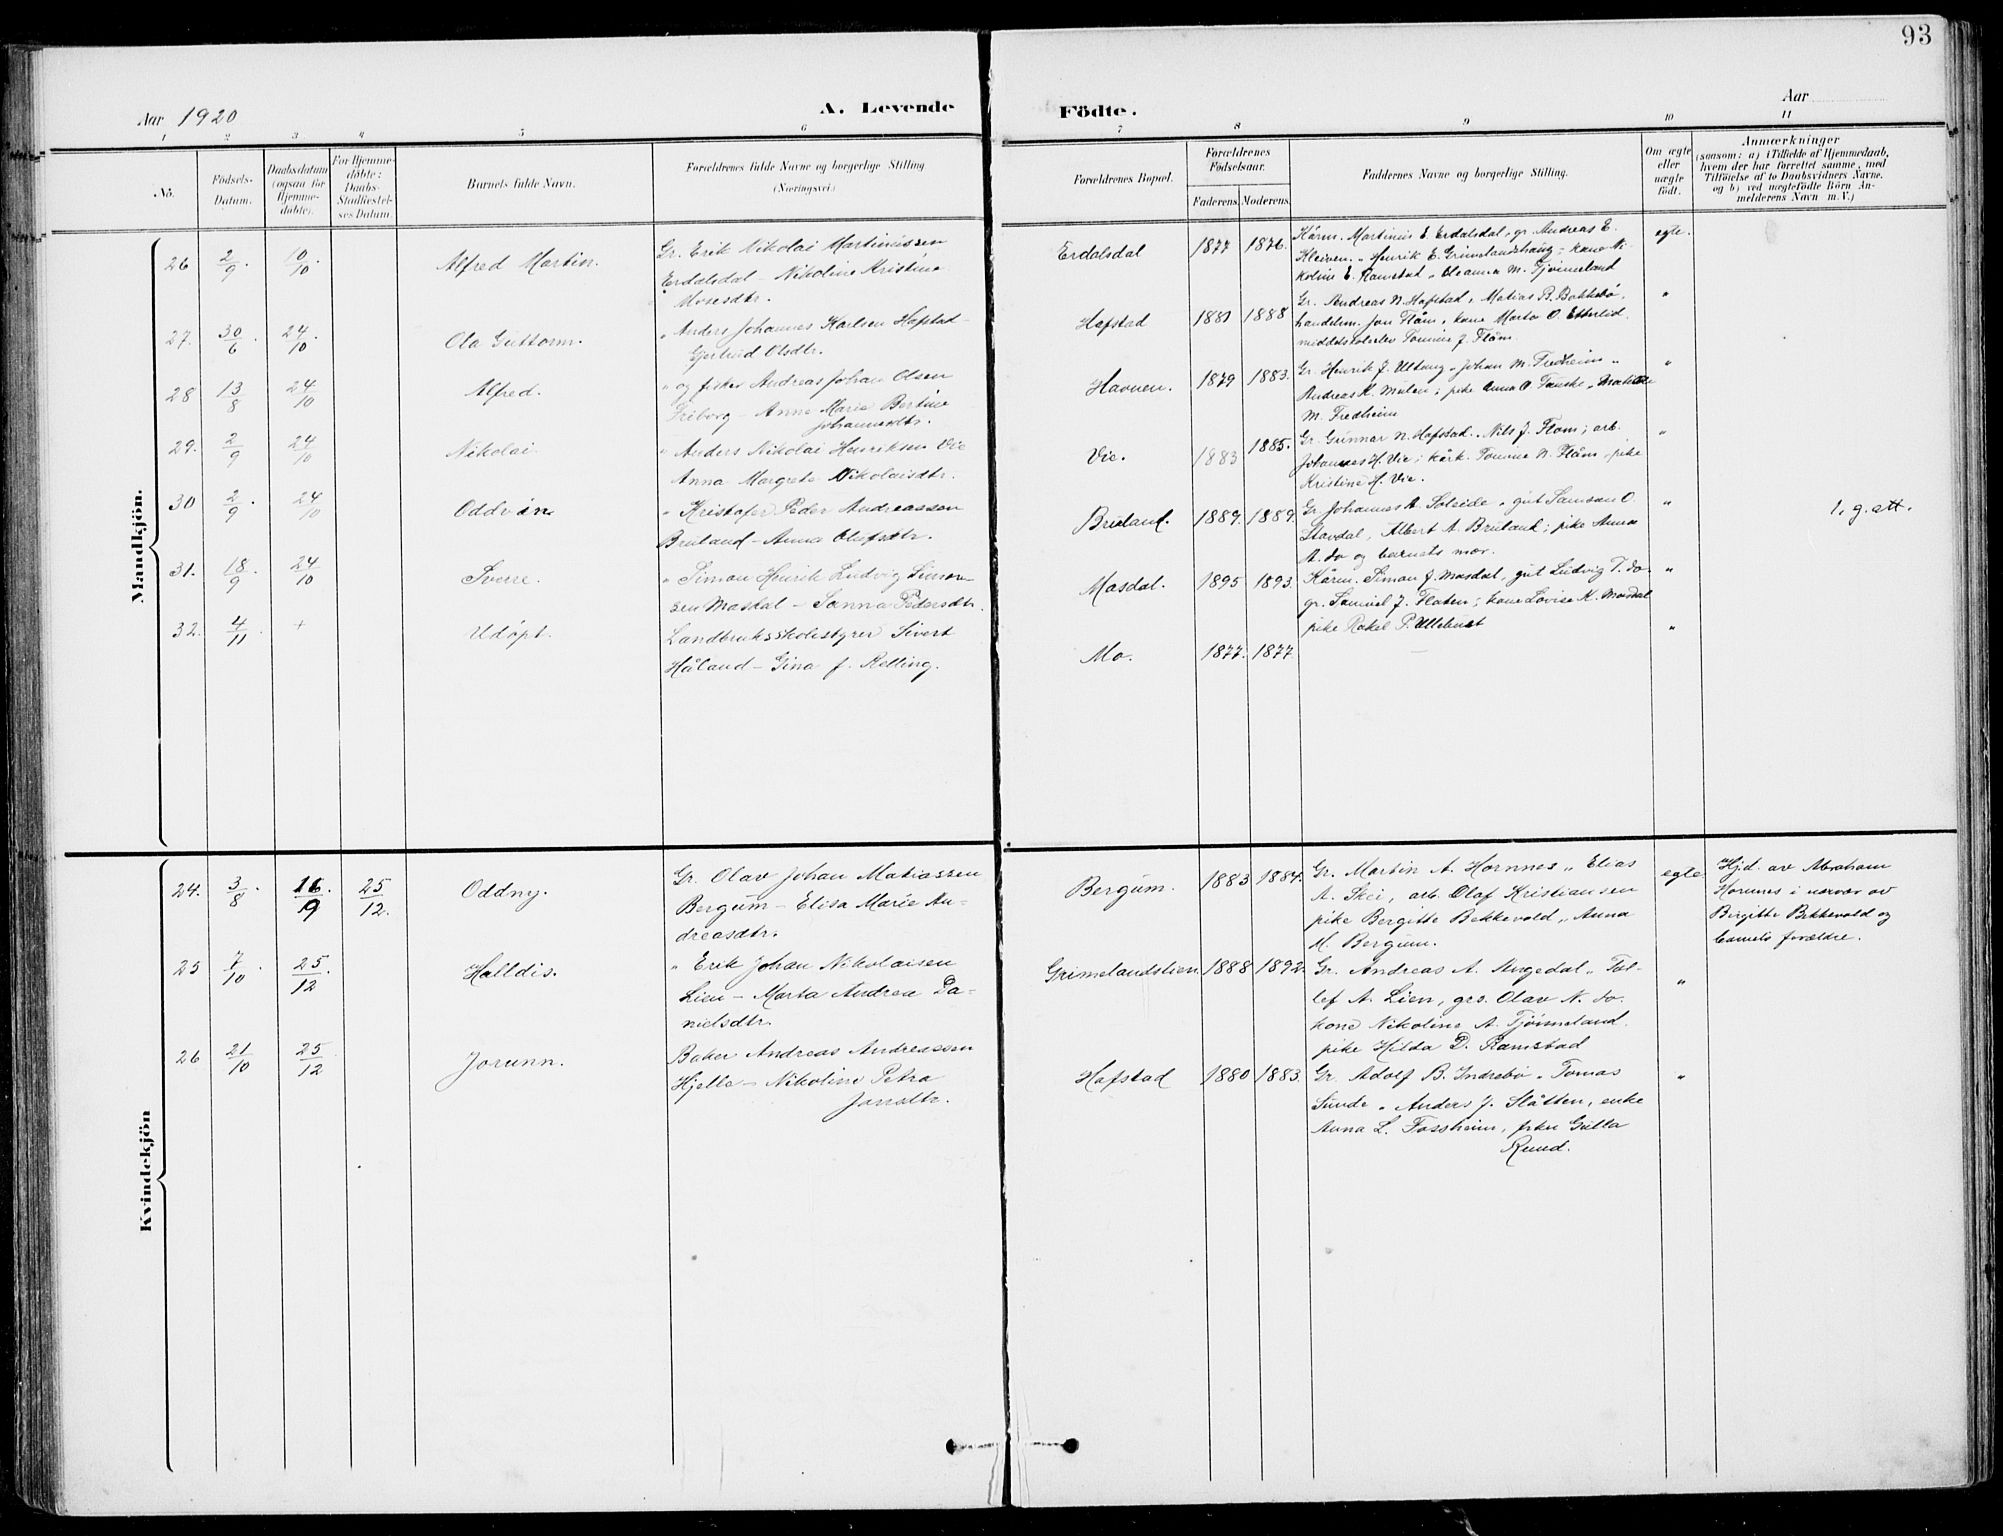 93
Aar 1920
A. Levende
Födte.
Aar
1 2 3 4 5 6 7 8 9 10 11
No.
Födsels-
Datum.
Daabsdatum
(ogsaa for
Hjemme-
døbte).
For Hjemme-
døbte:
Daabs-
Stadfæstel-
ses Datum
Barnets fulde Navn.
Forældrenes fulde Navne og borgerlige Stilling
(Næringsvei.)
Forældrenes Bopæl.
Forældrenes
Födselsaar.
Faderens. Moderens.
Faddernes Navne og borgerlige Stilling.
Om ægte
eller
uægte
födt.
Anmærkninger
(saasom: a) i Tilfælde af Hjemmedaab,
hvem der har forrettet samme, med
Tilföielse af to Daabsvidners Navne,
og b) ved uægtefödte Börn An-
melderens Navn m. V.)
Mandkjön.
26 2/9. 10/10. Alfred Martin.
Gr. Erik Nikolai Martinussen
Erdalsdal - Nikoline Kristine
Mosesdtr.
Erdalsdal 1877 1876.
Kårm. Martinus E. Erdalsdal, gr. Andreas E.
Kleiven. " Henrik E. Grimelandshaug; kone Ni-
koline E. Ramstad " Oleanna M. Tjønneland
egte.
27. 30/6. 24/10. Ola Guttorm.
" Anders Johannes Karlsen Hafstad -
Gjertrud Olsdtr.
Hafstad 1881 1888
Gr. Andreas N. Hafstad, Matias B. Bakkebø,
handelsm. Jon Flåm, kone Marta O. Etterlid
Tomine J. Flåm.
"
28 13/8 24/10 Alfred.
" og fisker Andreas Johan Olsen
Friborg - Anne Marie Bertine
Johannesdtr.
Havnen. 1879 1883.
Gr. Henrik J. Ultang " Johan M. Fredheim "
Andreas K. Mulen; pike Anna O. " Matilde
M. Fredheim
"
29. 2/9 24/10 Nikolai.
" Anders Nikolai Henriksen Vie
Anna Margrete Nikolaisdtr.
Vie. 1883 1885.
Gr. Gunnar N. Hafstad. " Nils J. Flåm; arb.
Johannes H. Vie; Tomine N. Flåm, pike
Kristine H. Vie.
"
30 2/9. 24/10 Oddvin
" Kristofer Peder Andreassen
Bruland - Anna Olafsdtr.
Bruland. 1889. 1889.
Gr. Johannes A. Soleide " gut Samson O.
Stavdal, Albert A. Bruland; pike Anna
A. do og barnets mor.
"
1. g. att.
31. 18/9. 24/10 Sverre.
" Simon Henrik Ludvig Simon-
sen Masdal - Sanna Pedersdtr.
Masdal. 1895 1893.
Kårm. Simon J. Masdal, gut Ludvig T. do.
gr. Samuel J. Flaten; kone Lovise K. Masdal
pike Rakel P. Ullebust
"
32. 4/11. + Udøpt.
Landbruksskolestyrer Sivert
Håland - Gina f. Relling.
Mo. 1877. 1877
-
"
Kvindekjön
24. 3/8. 16/19 25/12. Oddny.
Gr. Olav Johan Matiassen
Bergum - Elisa Marie An-
dreasdtr.
Bergum. 1883 1884.
Gr. Martin A. Hornnes " Elias
A. Skei, arb. Olaf Kristiansen
pike Bergitte Bekkevold " Anna
M. Bergum.
egte
Hjd. av Abraham
Hornnes i nærvær av
Birgitte Bekkevold og
barnets forældre.
25 7/10. 25/12 Halldis.
" Erik Johan Nikolaisen
Lien - Marta Andrea Da-
nielsdtr.
Grimelandslien 1888 1892.
Gr. Andreas A. Angedal " Tol-
lef A. Lien, grs. Olav N. do.
kone Nikoline A. Tjønneland.
pike Hilda D. Ramstad
"
26 21/10 25/12 Jorunn.
Baker Andreas Andreassen
Hjelle - Nikoline Petra
Jonsdtr.
Hafstad 1880 1883.
Gr. Adolf B. Indrebø " Tomas
Sunde " Anders J. Slåtten, enke
Anna L. Fossheim, frkn Gulla
Ruud.
"